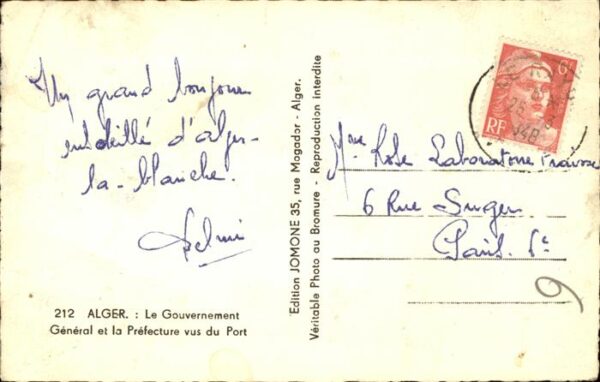 Un grand bonjour
ensoleillé d'alger-
la-blanche.
212 ALGER. : Le Gouvernement
Général et la Préfecture vus du Port
Edition JOMONE 35, rue Mogador - Alger.
Véritable Photo au Bromure - Reproduction interdite
RF
25
Mme Rose Laboratoire
6 Rue Suger
Paris. 6e
6